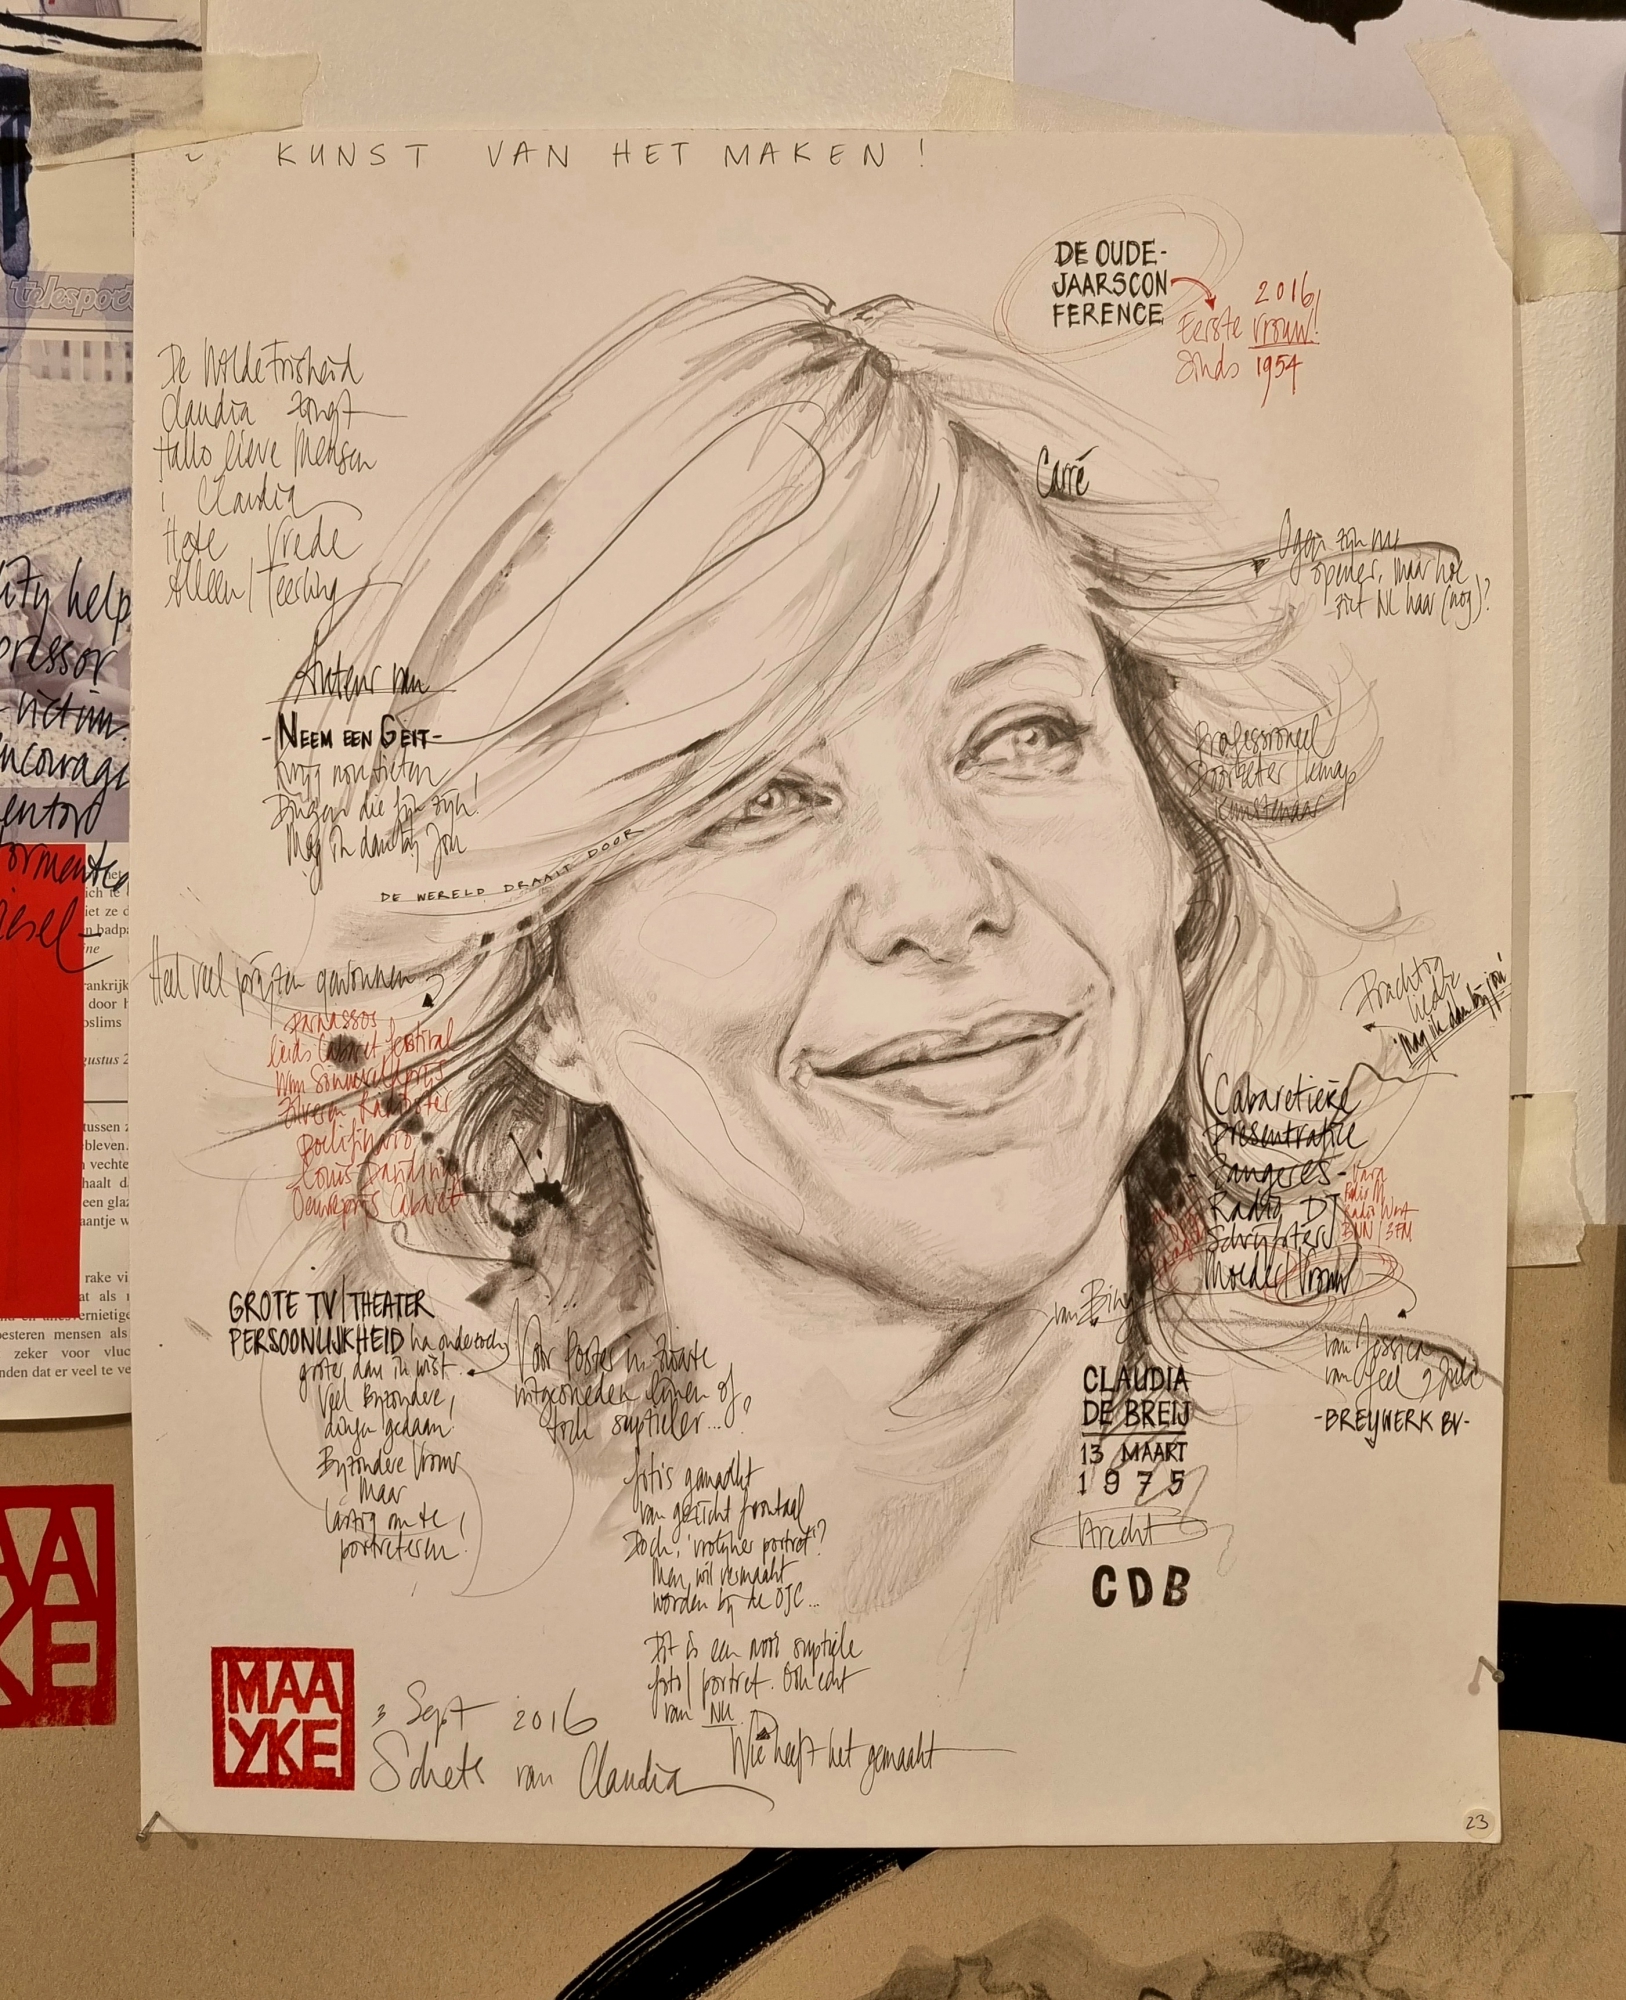 KUNST VAN HET MAKEN!
DE OUDE-
JAARSCON
FERENCE
2016,
Eerste vrouw!
Sinds 1954
Carré
telesport
De Wilde Frisheid
Claudia zingt
Hallo lieve Mensen
Claudia
Hete Vrede
Alleen / Teerling
Ogen zijn nu
opener, maar hoe
ziet NL haar (nog)?
Auteur van
- NEEM EEN GEIT -
Dingen die fijn zijn!
Mag ik dan bij jou
DE WERELD DRAAIT DOOR
Professioneel
Doorzetter / knap
Kunstenaar
ity help
pressor
victim
encourage
Heel veel prijzen gewonnen
Parnassos
Leids Cabaret festival
Wim Sonneveldprijs
Zilveren Radioster
Poelifinario
Louis Davids
Oeuvreprijs Cabaret
Prachtig
liedje
'Mag ik dan bij jou'
Cabaretière
Presentatrice
- Zangeres -
Radio DJ
Schrijfster
Moeder / Vrouw
Vara
Radio M
Radio West
BNN / 3FM
van Jessica
van Geel
- BREIJWERK BV -
GROTE TV/THEATER
PERSOONLIJKHEID na onderzoek
groter dan ik wist.
Veel Bijzondere,
dingen gedaan.
Bijzondere Vrouw
Maar
lastig om te
portreteren!
Voor Poster in zwarte
uitgesneden lijnen of,
toch suptieler...?
foto's gemaakt
van gezicht frontaal
Toch, 'vrolijker portret'?
Men wil vermaakt
worden bij de OJC...
Dit is een mooi suptiele
foto / portret. Ook echt
van NU
Wie heeft het gemaakt
CLAUDIA
DE BREIJ
13 MAART
1975
Utrecht
CDB
MAA
YKE
3 Sept 2016
Schets van Claudia
23